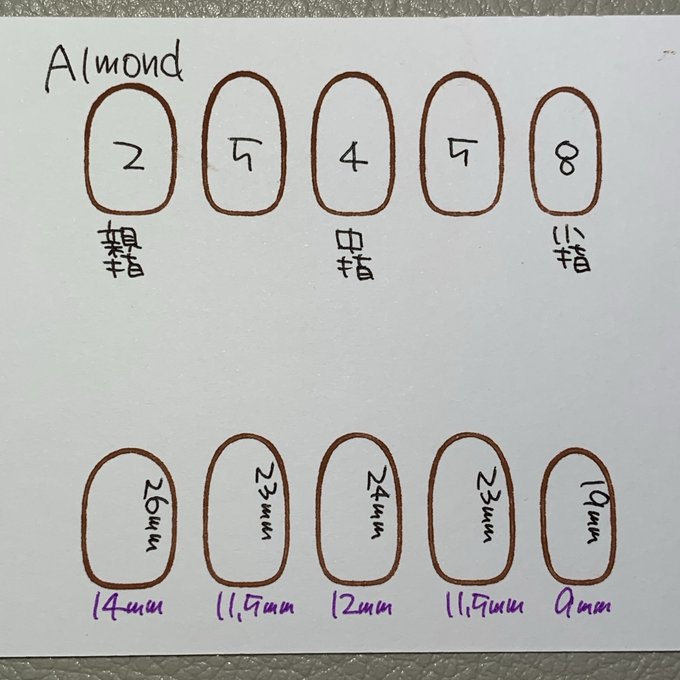 Almond
2 5 4 5 8
親指 中指 小指
26mm 23mm 24mm 23mm 19mm
14mm 11,5mm 12mm 11,5mm 9mm